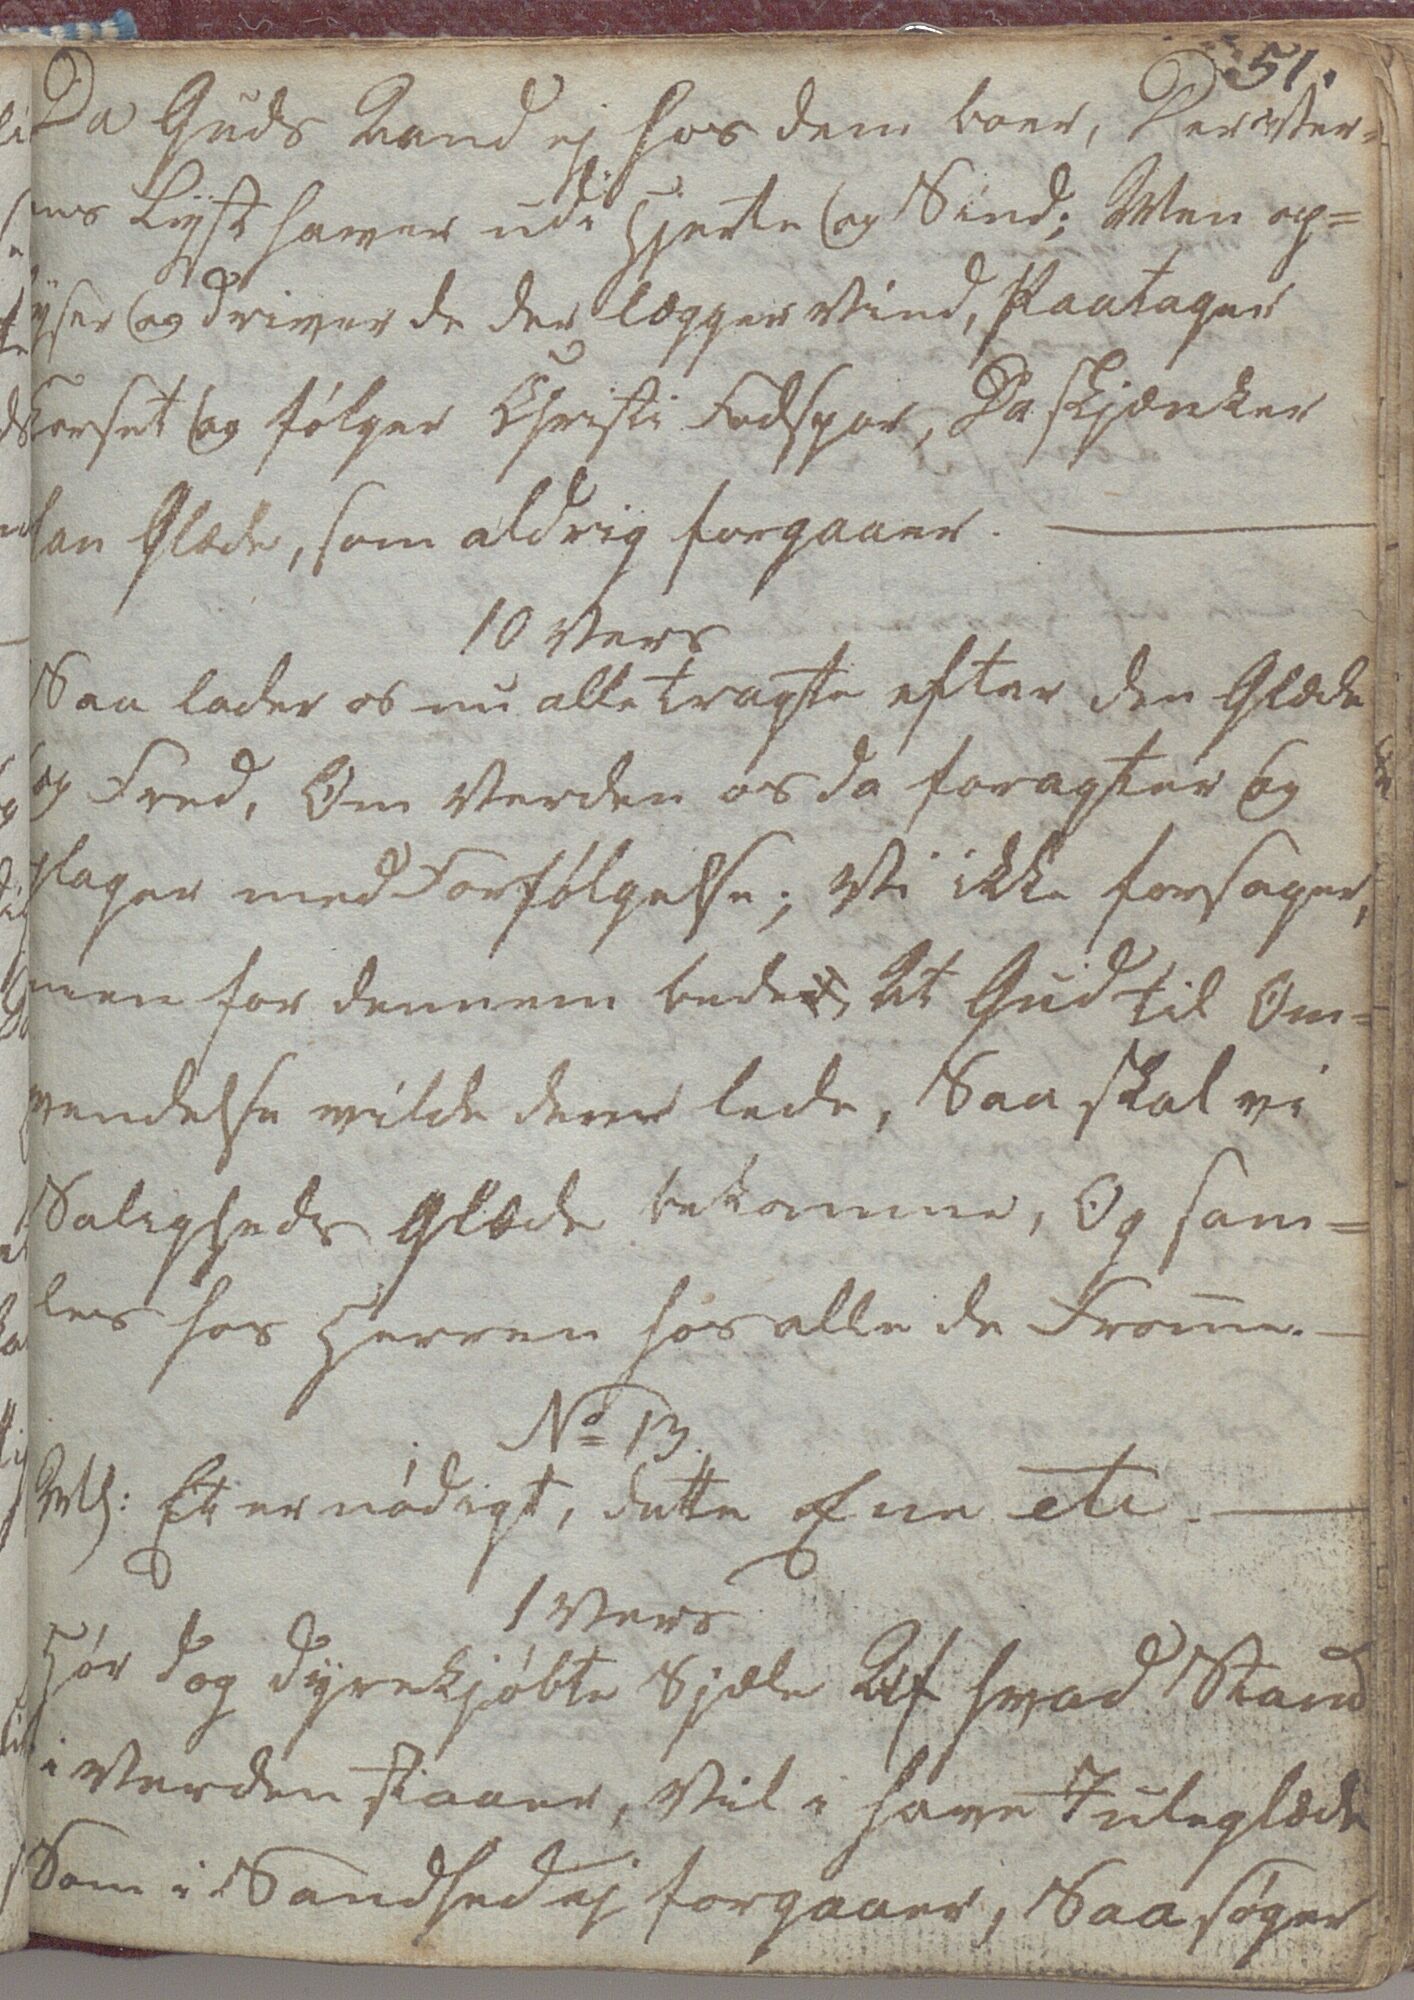 51.
Da Guds Aand ej hos dem boer, Der Ver-
ens Lyst haver udi Hjerte og Sind; Men op=
lyser og driver de der lægger Vind, Paatager
Korset og følger Christi Fodspor, Da skjænker
han Glæde, som aldrig forgaaer.
10 Vers
Saa lader os nu alle tragte efter den Glæde
og Fred, Om Verden os da foragter og
plager med Forfølgelse; Vi ikke forsager,
men for dennem beder, At Gud til Om=
vendelse vilde dem lede, Saa skal vi
Saligheds Glæde bekomme, Og sam=
les hos Herren hos alle de Fromme.
No 13.
Mel: Et er nødigt, dette Ene etc.
1 Vers
Hør dog dyrekjøbte Sjæle Af hvad Stand
i Verden staaer, Vil i have Juleglæde
Som i Sandhed ej forgaaer, Saa søger